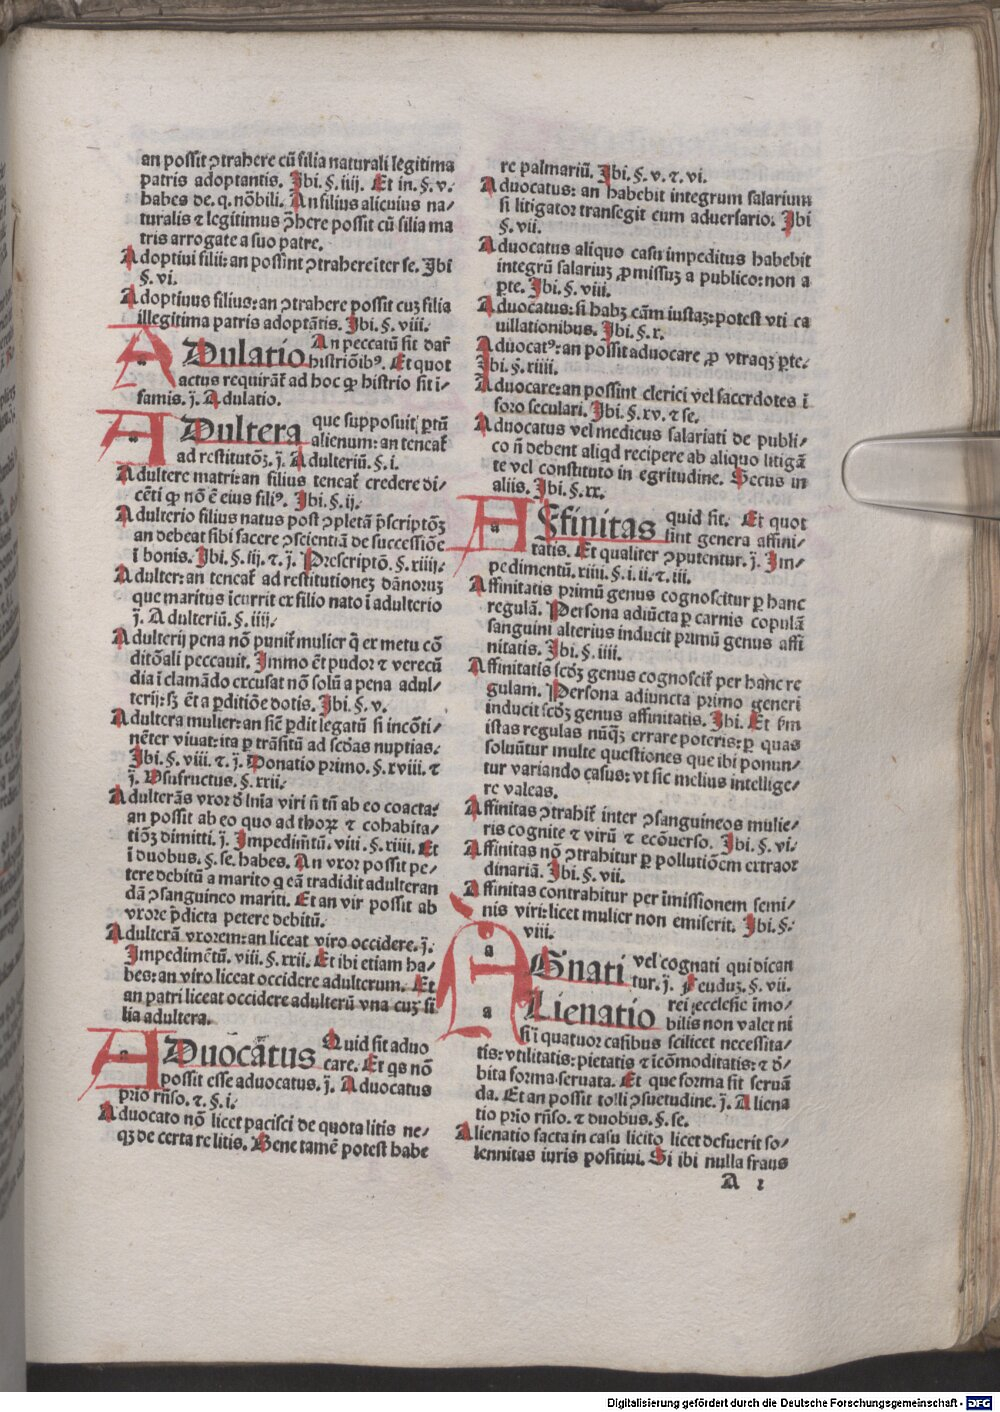 an possit ꝯtrahere cū filia naturali legitima
patris adoptantis. Ibi. §. iiij. Et in. §. v.
habes de. q. nōbili. An filius alicuius na-
turalis ⁊ legitimus ꝯhere possit cū filia ma
tris arrogate a suo patre.
Adoptiui filii: an possint ꝯtrahere īter se. Ibi
§. vi.
Adoptiuus filius: an ꝯtrahere possit cuz filia
illegitima patris adoptātis. Ibi. §. viii.
ADulatio An peccatū sit dar̄
histriōib⁹. Et quot
actus requirāt̄ ad hoc ꝙ histrio sit i-
famis. j̄. Adulatio.
ADultera que supposuit ꝑtū
alienum: an teneat̄
ad restitutōꝫ. j̄. Adulteriū. §. i.
Adultere matri: an filius teneat̄ credere di-
cēti ꝙ nō ē eius fili⁹. Ibi. §. ij.
Adulterio filius natus post ꝯpletā p̄scriptōꝫ
an debeat sibi facere ꝯscientiā de successiōe
ī bonis. Ibi. §. iij. ⁊. j̄. Prescriptō. §. xiiij.
Adulter: an teneat̄ ad restitutionez dānoruz
que maritus īcurrit ex filio nato ī adulterio
j̄. Adulteriū. §. iiij.
Adulterij pena nō punit̄ mulier q̄ ex metu cō
ditōali peccauit. Immo ēt pudor ⁊ verecū
dia ī clamādo excusat nō solū a pena adul-
terij: sꝫ ēt a ꝑditiōe dotis. Ibi. §. v.
Adultera mulier: an sic̄ ꝑdit legatū si incōti-
nēter viuat: ita ꝑ trāsitū ad scdas nuptias.
Ibi. §. viii. ⁊. j̄. Donatio primo. §. xviii. ⁊
j̄. Vsufructus. §. xxii.
Adulterās vxor d̄ lnīa viri n̄ tn̄ ab eo coacta:
an possit ab eo quo ad thoꝝ ⁊ cohabita-
tiōꝫ dimitti. j̄. Impedim̄tū. viii. §. xiiii. Et
ī duobus. §. se. habes. An vxor possit pe-
tere debitū a marito q̄ eā tradidit adulteran
dā ꝯsanguineo mariti. Et an vir possit ab
vxore p̄dicta petere debitū.
Adulterā vxorem: an liceat viro occidere. j̄.
Impedimētū. viii. §. xxii. Et ibi etiam ha-
bes: an viro liceat occidere adulterum. Et
an patri liceat occidere adulterū vna cuz fi
lia adultera.
ADuocātus Quid sit aduo
care. Et qs nō
possit esse aduocatus. j̄. Aduocatus
prio rn̄so. ⁊. §. i.
Aduocato nō licet pacisci de quota litis ne-
qꝫ de certa re litis. Bene tamē potest habe
re palmariū. Ibi. §. v. ⁊. vi.
Aduocatus: an habebit integrum salarium
si litigator transegit cum aduersario. Ibi
§. vii.
Aduocatus aliquo casu impeditus habebit
integrū salariuz ꝓmissuz a publico: non a
ꝑte. Ibi. §. viii.
Aduocatus: si habꝫ cām iustaz: potest vti ca
uillationibus. Ibi. §. x.
Aduocat⁹: an possit aduocare ꝓ vtraqꝫ ꝑte.
Ibi. §. xiiii.
Aduocare: an possint clerici vel sacerdotes ī
foro seculari. Ibi. §. xv. ⁊ se.
Aduocatus vel medicus salariati de publi-
co n̄ debent aliqd recipere ab aliquo litigā
te vel cōnstituto in egritudine. Secus in
aliis. Ibi. §. xx.
AFfinitas quid sit. Et quot
sint genera affini-
tatis. Et qualiter ꝯputentur. j̄. Im-
pedimentū. xiiii. §. i. ii. ⁊. iii.
Affinitatis primū genus cognoscitur ꝑ hanc
regulā. Persona adiūcta ꝑ carnis copulā
sanguini alterius inducit primū genus affi
nitatis. Ibi. §. iiii.
Affinitatis scdꝫ genus cognoscit̄ per hanc re
gulam. Persona adiuncta primo generi
inducit scdꝫ genus affinitatis. Ibi. Et ẜm
istas regulas nūqꝫ errare poteris: ꝑ quas
soluūtur multe questiones que ibi ponun-
tur variando casus: vt sic melius intellige-
re valeas.
Affinitas ꝯtrahit̄ inter ꝯsanguineos mulie-
ris cognite ⁊ virū ⁊ ecōuerso. Ibi. §. vi.
Affinitas nō ꝯtrahitur ꝑ pollutiōem extraor
dinariā. Ibi. §. vii.
Affinitas contrahitur per īmissionem semi-
nis viri: licet mulier non emiserit. Ibi. §.
viii.
AGnati vel cognati qui dican
tur. j̄. Feuduz. §. vii.
ALienatio rei ecclesie īmo-
bilis non valet ni
si ī quatuor casibus scilicet necessita-
tis: vtilitatis: pietatis ⁊ icōmoditatis: ⁊ d̄-
bita forma seruata. Et que forma sit seruā
da. Et an possit tolli ꝯsuetudine. j̄. Aliena
tio prio rn̄so. ⁊ duobus. §. se.
Alienatio facta in casu licito licet defuerit so-
lennitas iuris positiui. Si ibi nulla fraus
A 1
Digitalisierung gefördert durch die Deutsche Forschungsgemeinschaft - DFG